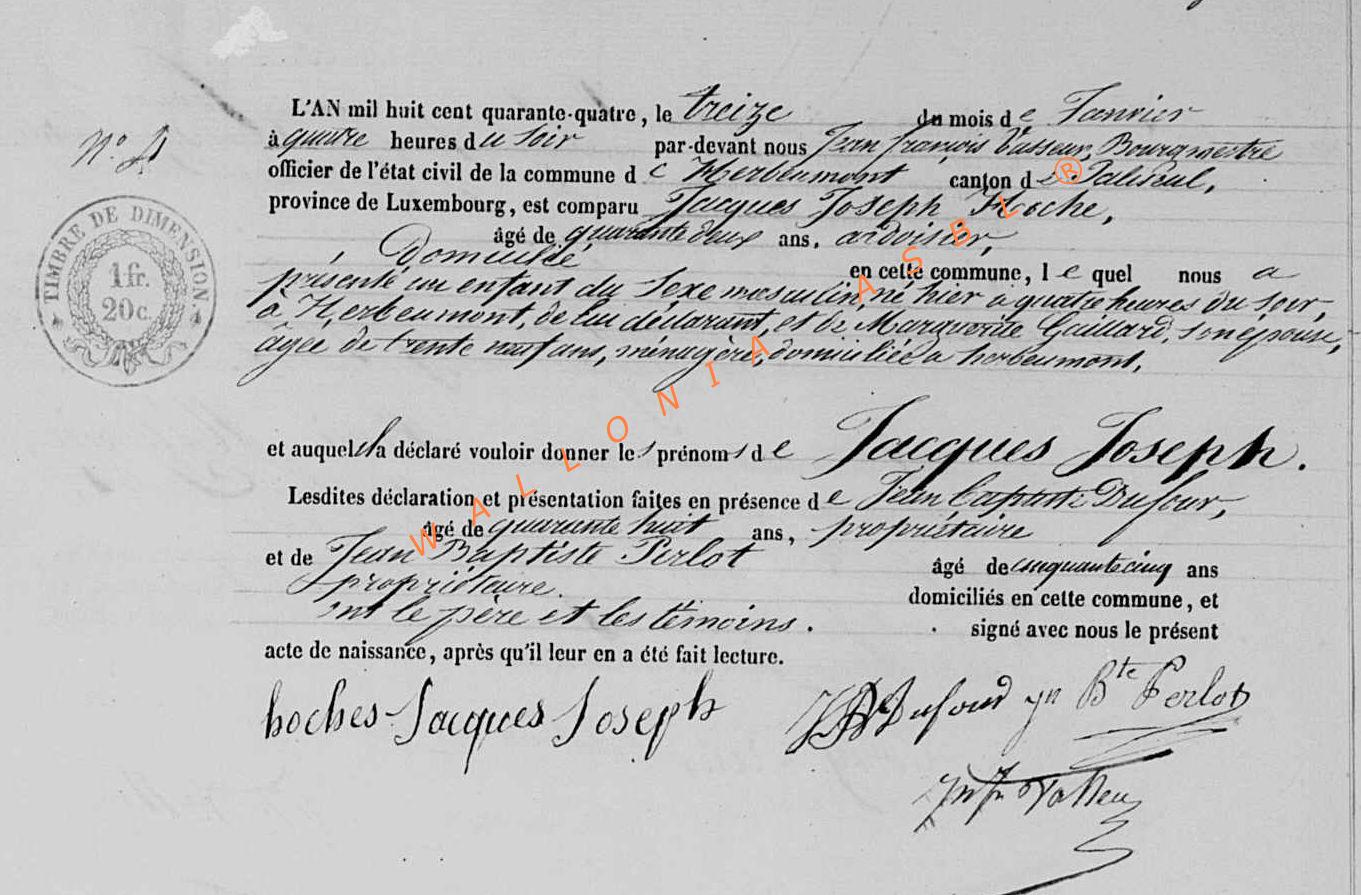 L'AN mil huit cent quarante-quatre, le treize du mois de Janvier
N° 4
à quatre heures du soir par-devant nous Jean françois Vasseur, Bourgmestre
officier de l'état civil de la commune de Herbeumont canton de Paliseul,
province de Luxembourg, est comparu Jacques Joseph Hoche,
âgé de quarante deux ans, ardoisier,
Domicilié en cette commune, lequel nous a
présenté un enfant du sexe masculin, né hier à quatre heures du soir,
à Herbeumont, de lui déclarant, et de Marguerite Gaillard, son épouse,
âgée de trente neuf ans, ménagère, domiciliée a herbeumont,
TIMBRE DE DIMENSION
1 fr.
20c.
et auquel il a déclaré vouloir donner les prénoms de Jacques Joseph.
Lesdites déclaration et présentation faites en présence de Jean Baptiste Dufour,
âgé de quarante huit ans, propriétaire
et de Jean Baptiste Perlot âgé de cinquante cinq ans
propriétaire. domiciliés en cette commune, et
ont le père et les témoins. signé avec nous le présent
acte de naissance, après qu'il leur en a été fait lecture.
hoches Jacques Joseph
JB Dufour jn Bte Perlot
WALLONIA ASBL ®